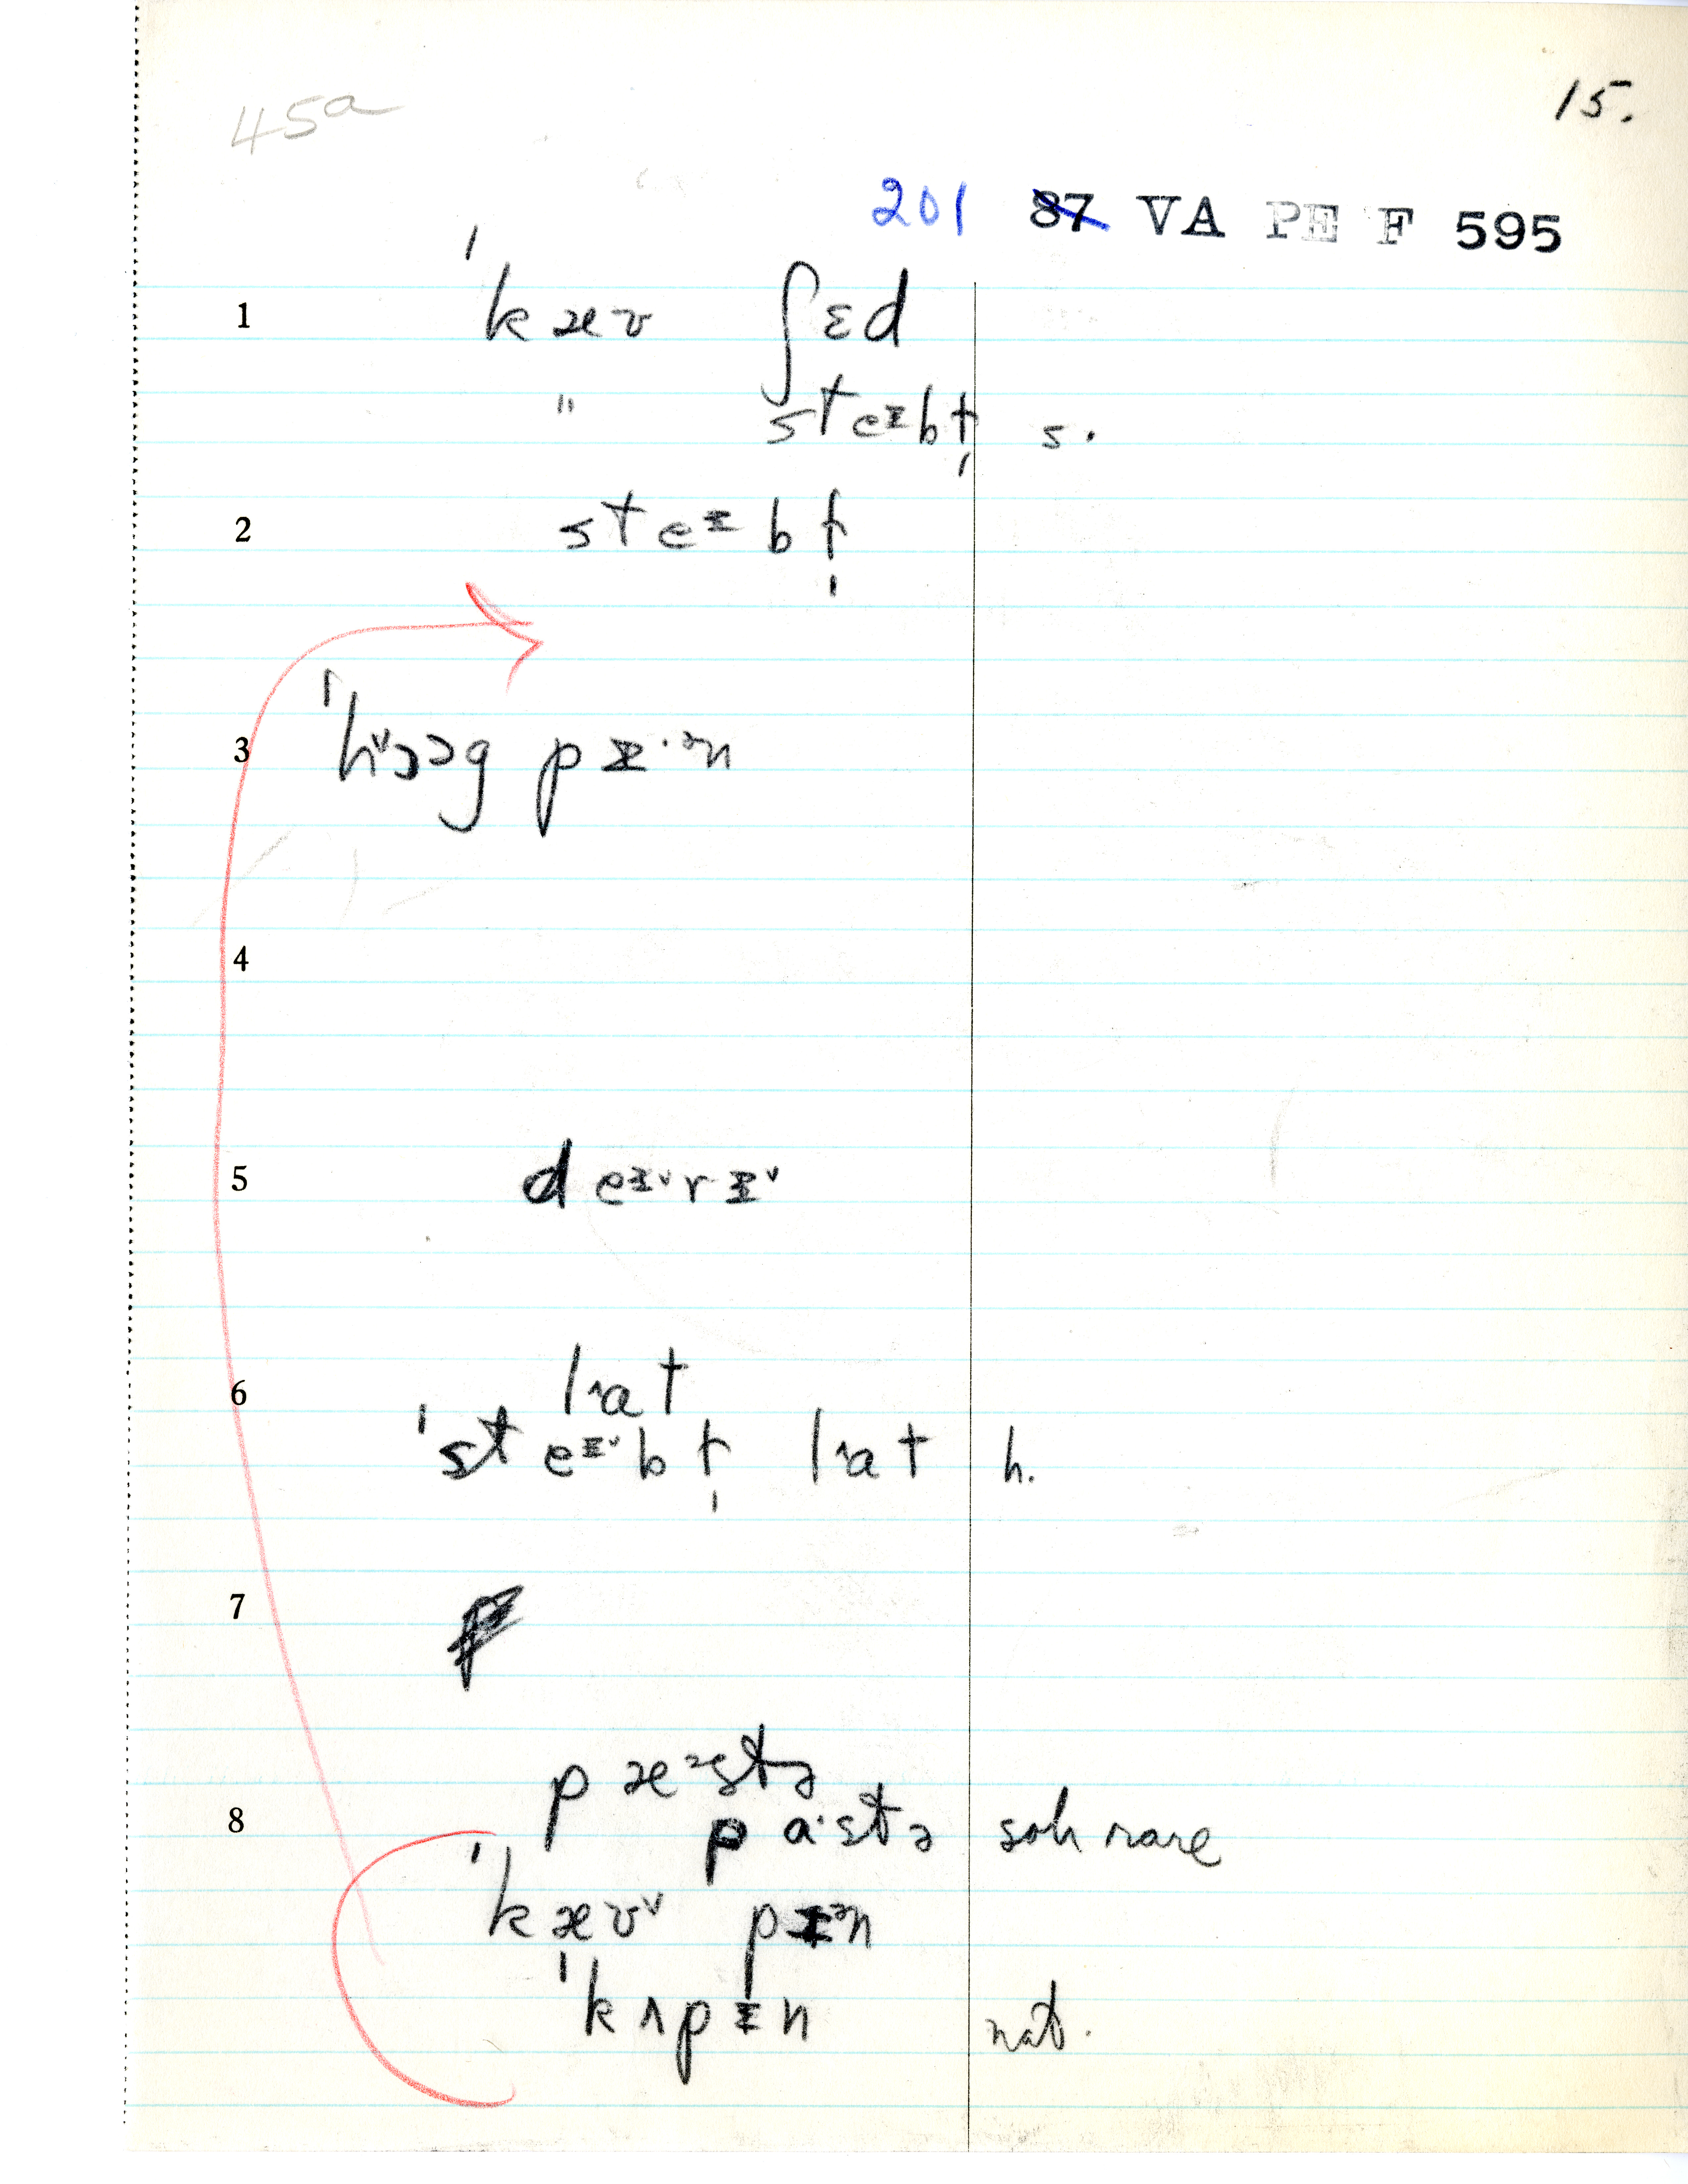 45a
15.
201 87 VA PE F 595
1 ˈkæv ʃɛd
" steɪbḷ s.
2 steɪbḷ
3 ˈhɔəg pɪˑᵊn
4
5 deɪ˅rɪ˅
6 lat
ˈsteɪ˅bḷ lat h.
7
8 pæᵊstə
paˑstə soh rare
ˈkæv˅ pɪᵊn
ˈkʌpɪn nat.